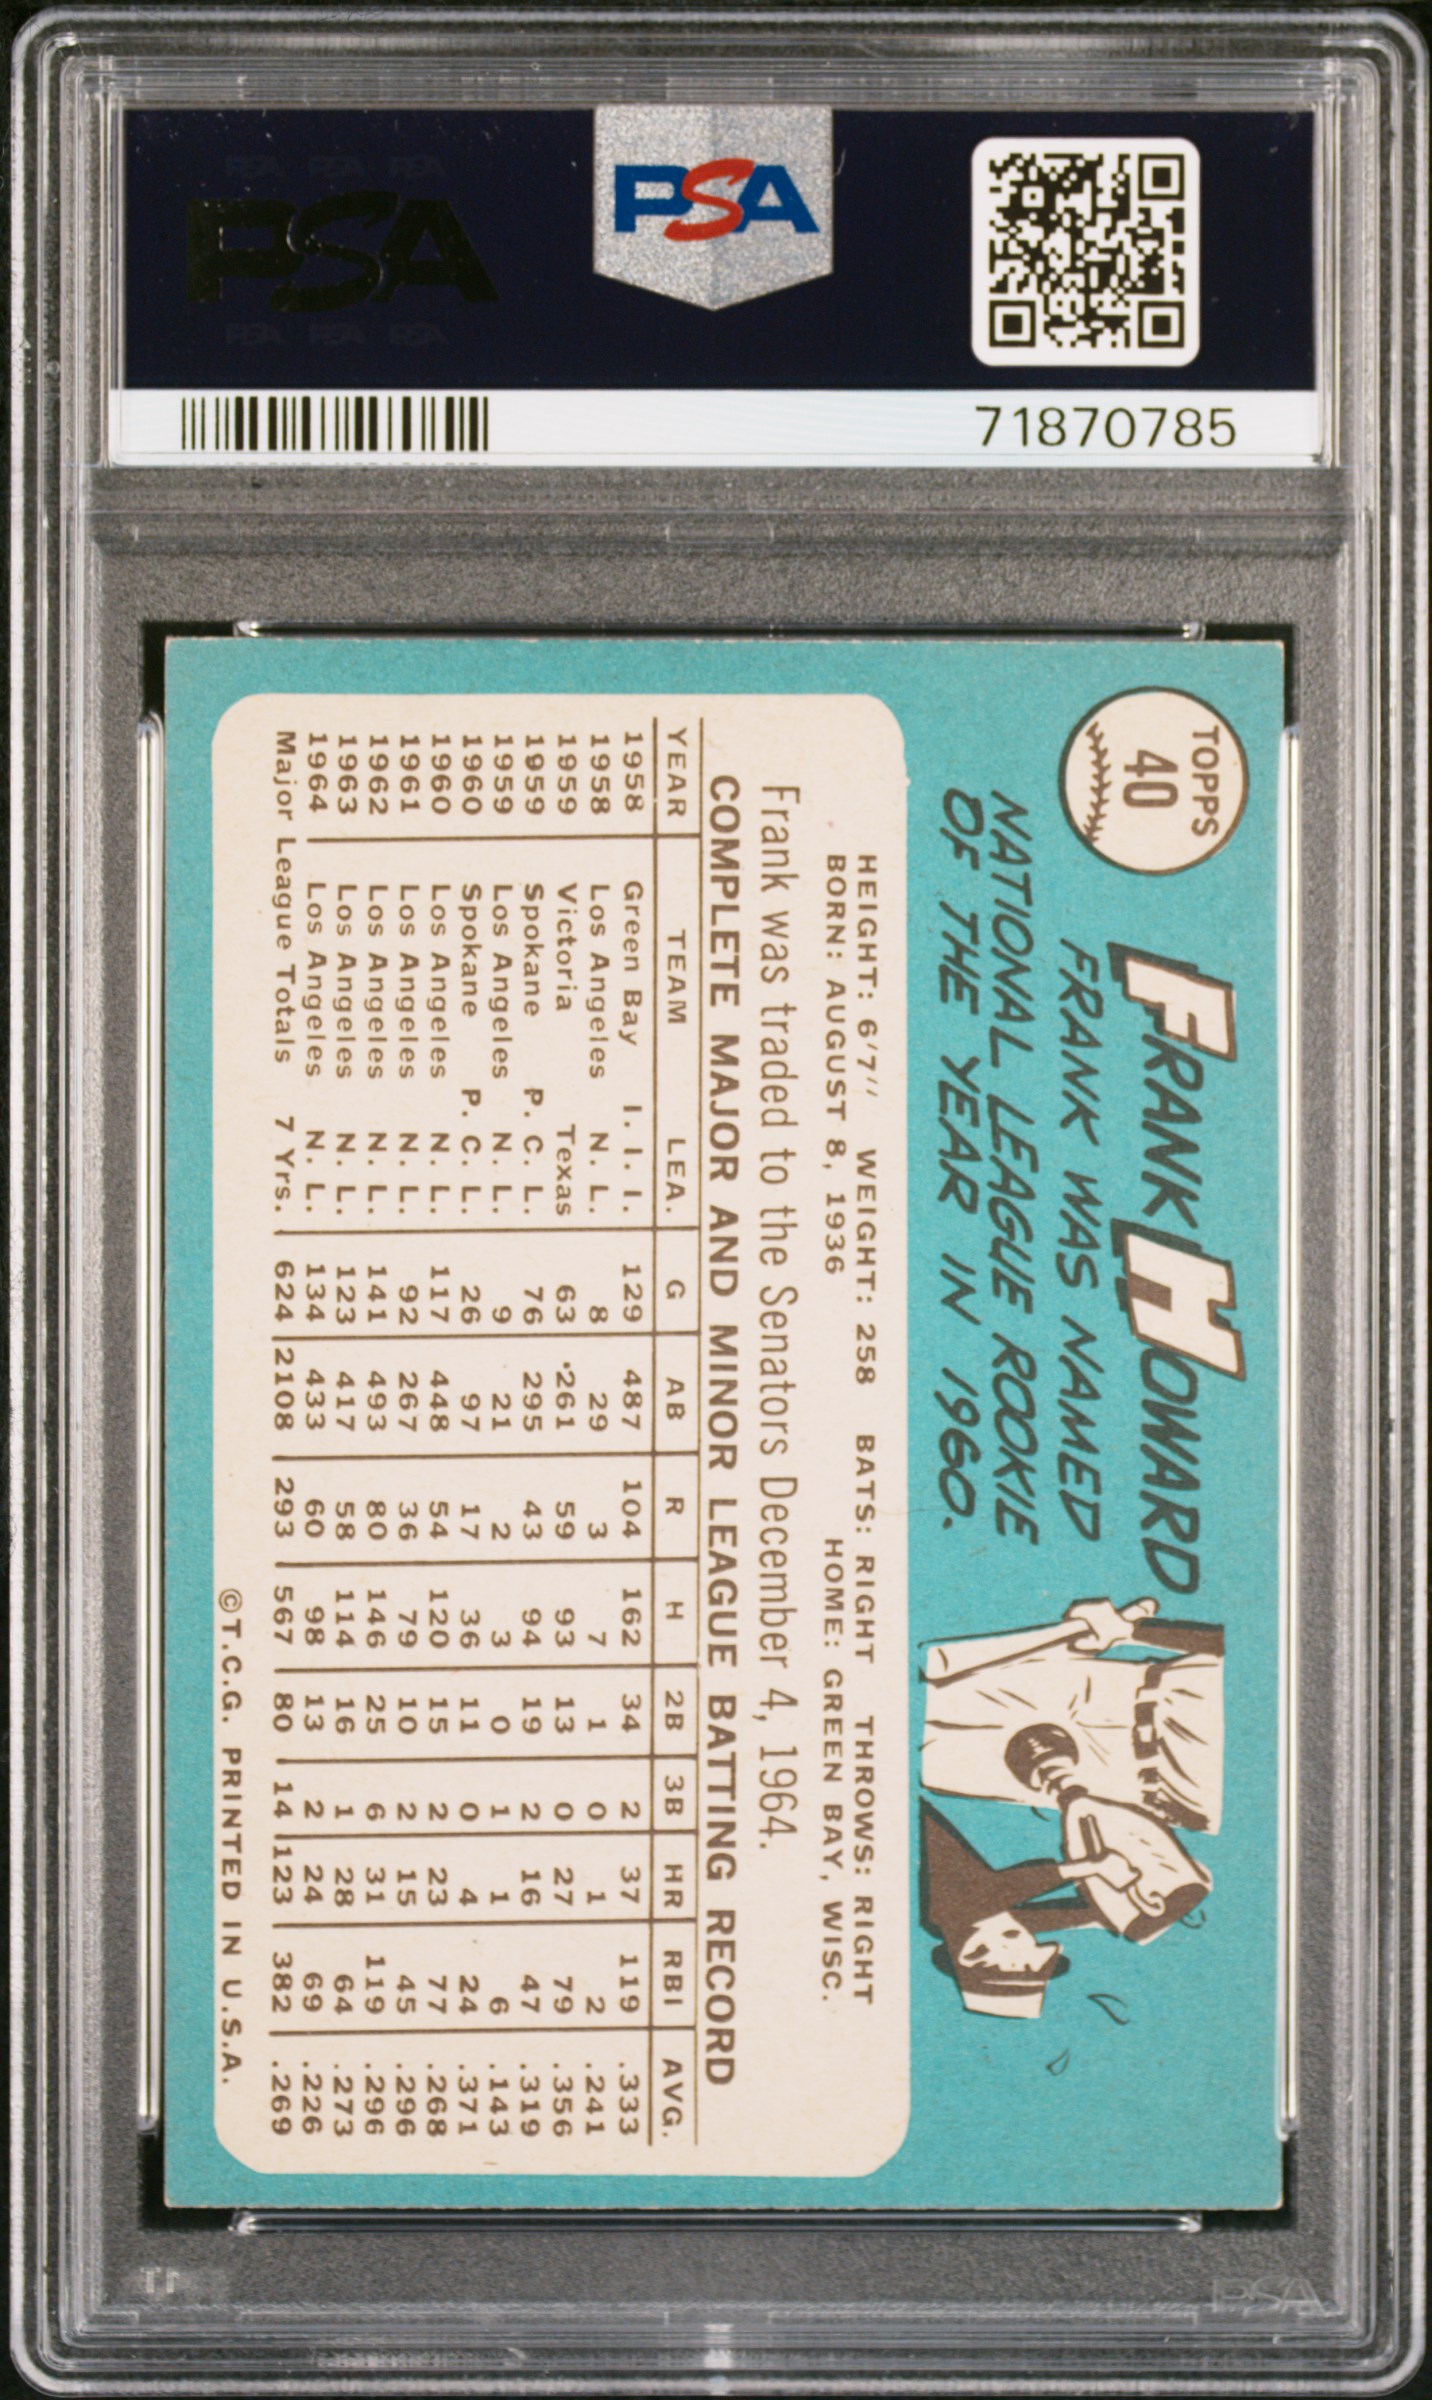 PSA PSA PSA
PSA
PSA PSA PSA
PSA
71870785
TOPPS
40
FRANK HOWARD
FRANK WAS NAMED
NATIONAL LEAGUE ROOKIE
OF THE YEAR IN 1960.
HEIGHT: 6'7" WEIGHT: 258 BATS: RIGHT THROWS: RIGHT
BORN: AUGUST 8, 1936 HOME: GREEN BAY, WISC.
Frank was traded to the Senators December 4, 1964.
COMPLETE MAJOR AND MINOR LEAGUE BATTING RECORD
YEAR TEAM LEA. G AB R H 2B 3B HR RBI AVG.
1958 Green Bay I. I. I. 129 487 104 162 34 2 37 119 .333
1958 Los Angeles N. L. 8 29 3 7 1 0 1 2 .241
1959 Victoria Texas 63 261 59 93 13 0 27 79 .356
1959 Spokane P. C. L. 76 295 43 94 19 2 16 47 .319
1959 Los Angeles N. L. 9 21 2 3 0 1 1 6 .143
1960 Spokane P. C. L. 26 97 17 36 11 0 4 24 .371
1960 Los Angeles N. L. 117 448 54 120 15 2 23 77 .268
1961 Los Angeles N. L. 92 267 36 79 10 2 15 45 .296
1962 Los Angeles N. L. 141 493 80 146 25 6 31 119 .296
1963 Los Angeles N. L. 123 417 58 114 16 1 28 64 .273
1964 Los Angeles N. L. 134 433 60 98 13 2 24 69 .226
Major League Totals 7 Yrs. 624 2108 293 567 80 14 123 382 .269
©T.C.G. PRINTED IN U.S.A.
PSA